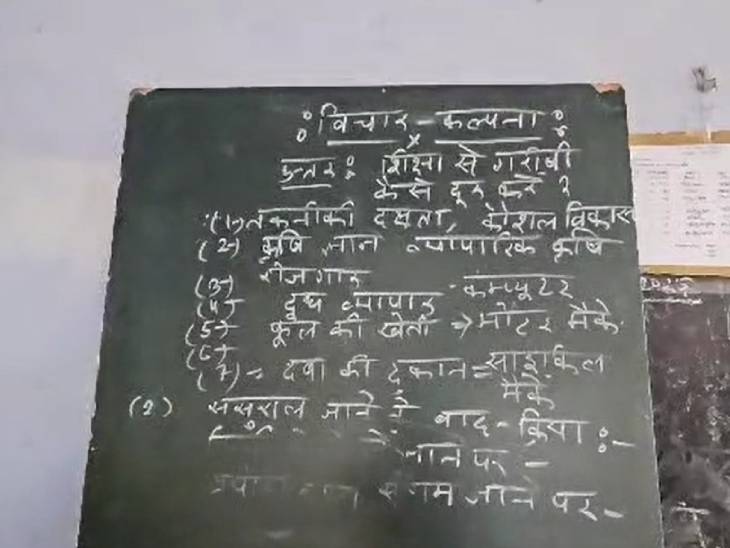 ः विचार - कल्पना ः
उत्तर ः शिक्षा से गरीबी
कैसे दूर करे ?
(1) तकनीकी दक्षता, कौशल विकास
(2) कृषि ज्ञान व्यापारिक कृषि
(3) रोजगार
कम्प्यूटर
(4) दूध व्यापार
(5) फूल की खेती → मोटर मैके
(6)
(7) = दवा की दुकान = साइकिल
मैके
(2) ससुराल जाने के बाद - क्रिया :-
जाने पर -
संगम जाने पर -
2025